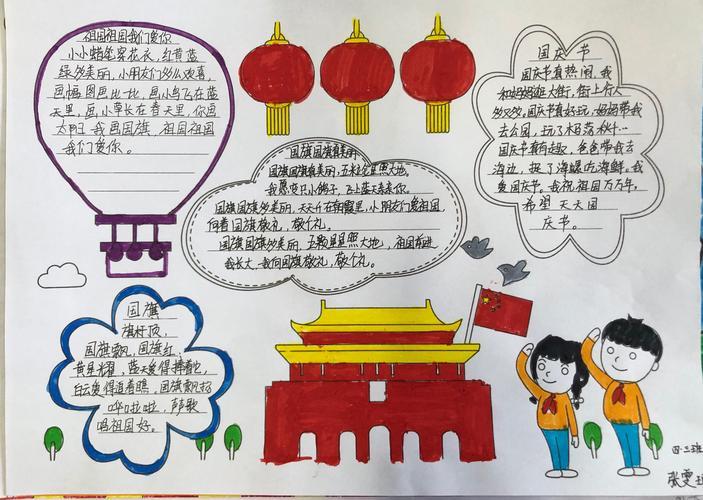 祖国祖国我们爱你
小小蜡笔穿花衣，红黄蓝
绿多美丽，小朋友们多么欢喜，
画幅图画比一比，画小鸟飞在蓝
天里，画小草长在春天里，你画
太阳我画国旗，祖国祖国
我们爱你。
国旗国旗真美丽
国旗国旗真美丽，五米金星照大地，
我愿变只小鸽子，飞上蓝天亲亲你。
国旗国旗多美丽，天天升在朝霞里，小朋友们爱祖国，
向着国旗敬礼，敬个礼。
国旗国旗多美丽，五颗星星照大地，祖国前进
我长大，我向国旗敬礼，敬个礼。
国庆节
国庆节真热闹，我
和妈妈逛大街，街上行人
多又多，国庆节真好玩，妈妈带我
去公园，玩了木马荡秋千…
国庆节真有趣，爸爸带我去
海边，捉了海螺吃海鲜。我
爱国庆节。我祝祖国万万年。
希望天天国
庆节。
国旗
旗杆顶，
国旗飘，国旗红，
黄星耀，蓝天爱得捧着它，
白云爱得追着瞧，国旗飘扬
哗啦啦，声声歌
唱祖国好。
四·三班
张雯